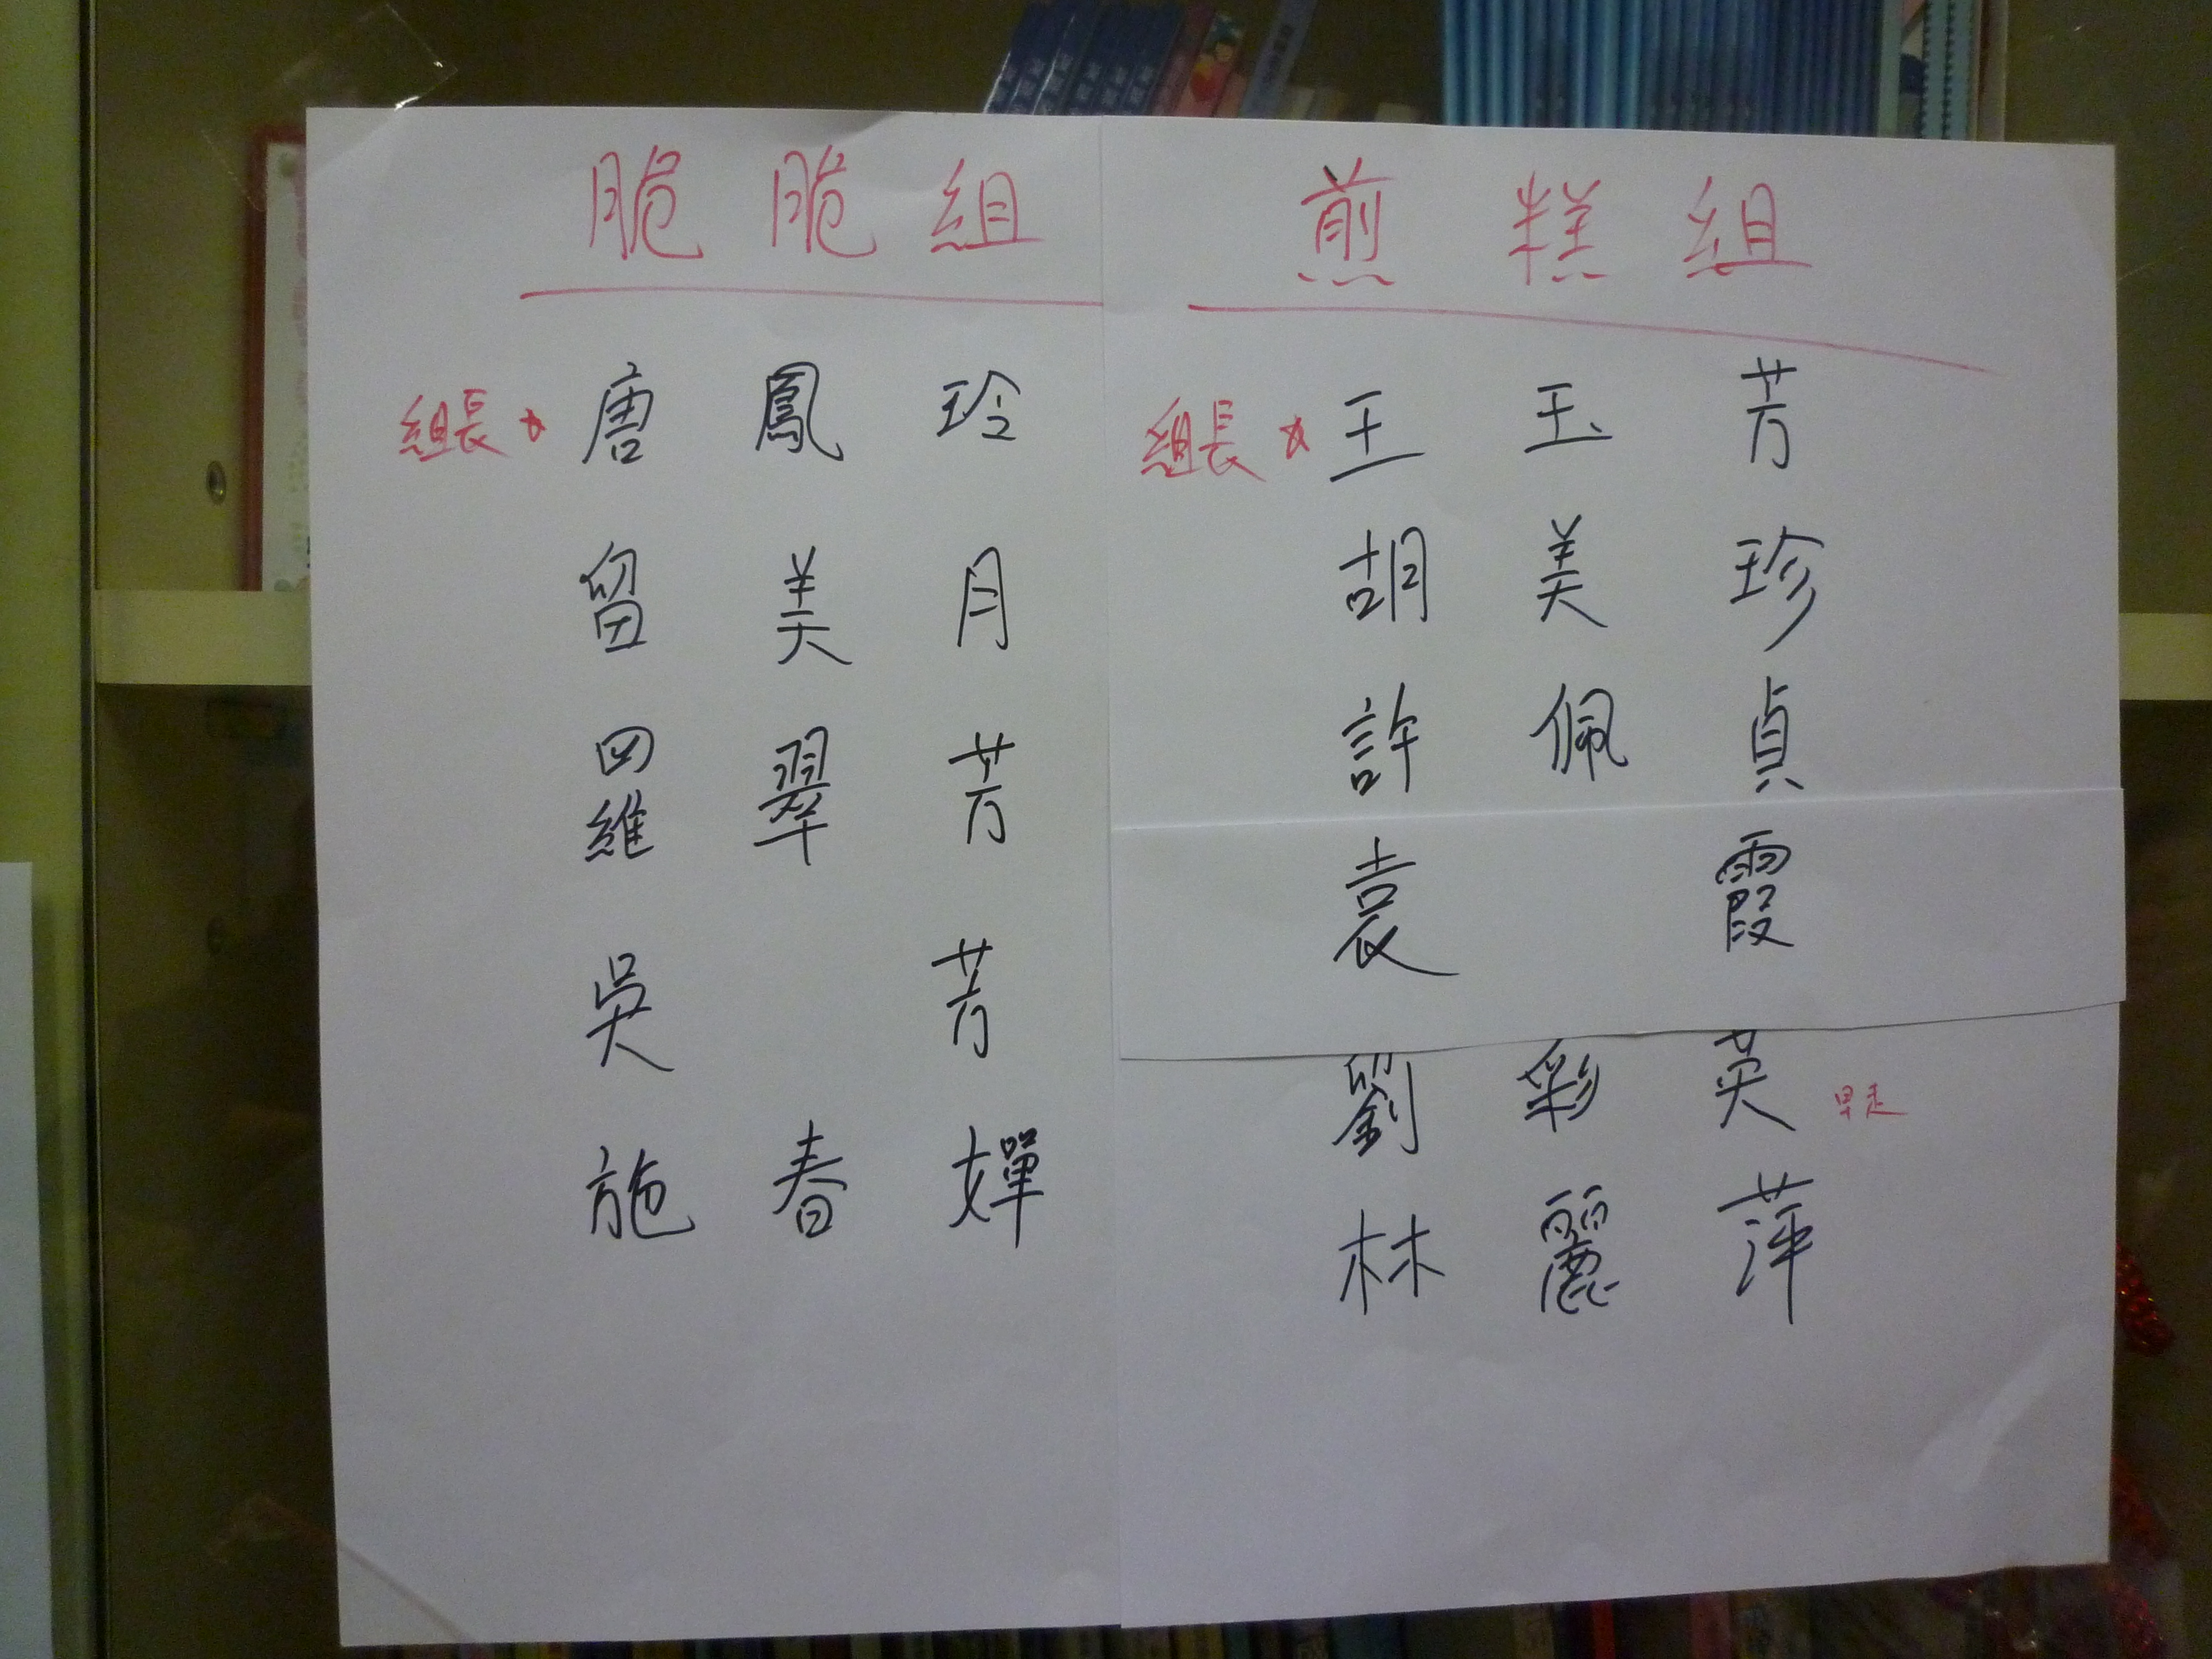 脆脆組
組長 ☆ 唐鳳玲
留美月
四維 翠芳
吳芳
施春嬋
煎糕組
組長 ☆ 王玉芳
胡美珍
許佩貞
袁霞
劉彩英 早走
林麗萍